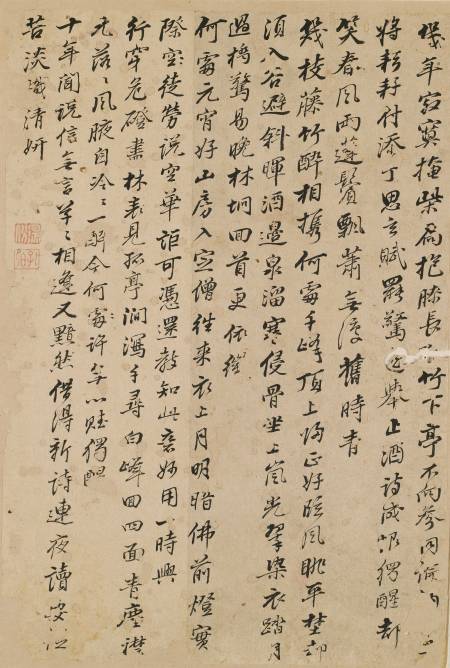 幾年寂寞掩柴扃抱膝長竹下亭不向參同
將耘耔付添丁思玄賦罷驚舉止酒詩成恨獨醒却
笑春風兩蓬鬢飄蕭無復舊時青
幾枝藤竹醉相攜何處千峰頂上歸正好臨風眺平楚却
須入谷避斜暉酒邊泉溜寒侵骨坐上嵐光翠染衣踏月
過橋驚易晚林坰回首更依微
何處元宵好山房入定僧往來衣上月明暗佛前燈實
際空徒勞說空華詎可憑還教知此意妙用一時興
行穿危磴盡林表見孤亭澗瀉千尋白峰回四面青塵襟
元落〻風腋自泠〻一醉今何處許心賦獨醒
十年聞說信無言草〻相逢又黯然借得新詩連夜讀
苦淡清妍